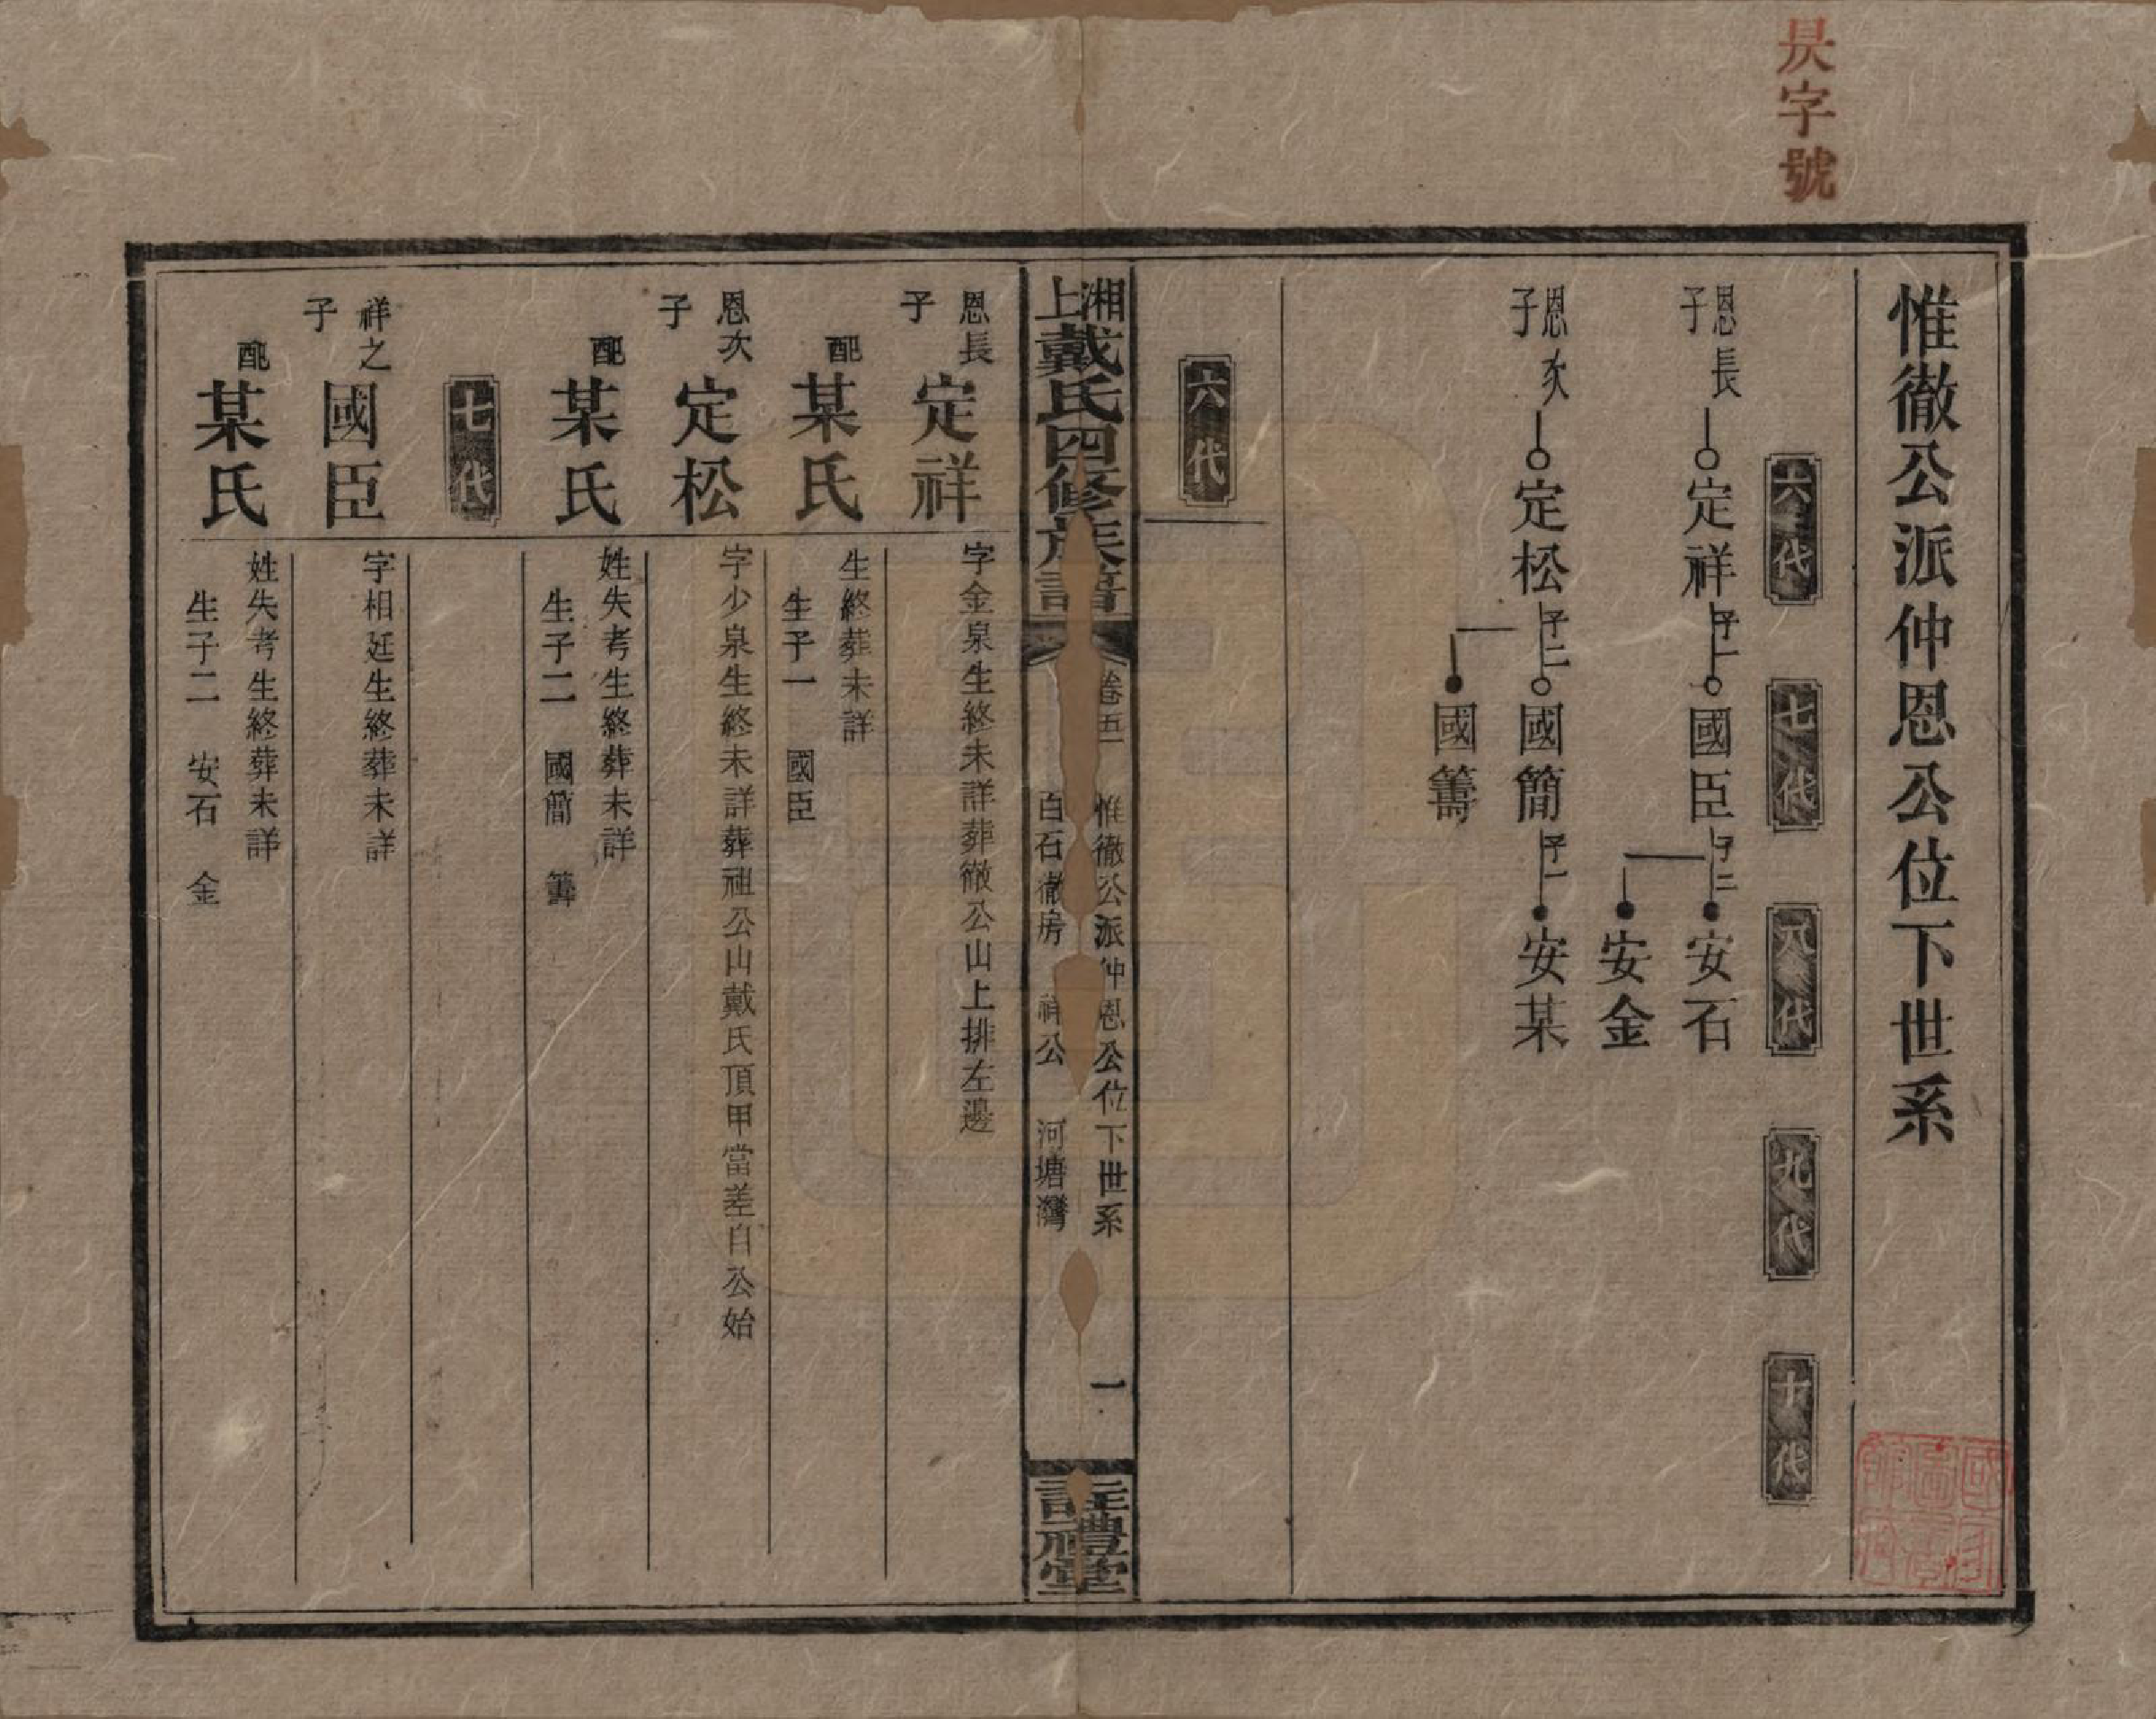 昃字號
惟徹公派仲恩公位下世系
六代
七代
八代
九代
十代
恩長子
定祥
子一
國臣
子二
安石
安金
恩次子
定松
子二
國簡
子一
安某
國籌
六代
湘上戴氏四修族譜
卷五
惟徹公派仲恩公位下世系
白石徹房 祥公 河塘灣
一
註禮堂
恩長子
定祥
字金泉生終未詳葬徹公山上排左邊
配某氏
生終葬未詳
生子一 國臣
恩次子
定松
字少泉生終未詳葬祖公山戴氏頂甲當差自公始
配某氏
姓失考生終葬未詳
生子二 國簡 籌
七代
祥之子
國臣
字相廷生終葬未詳
配某氏
姓失考生終葬未詳
生子二 安石 金